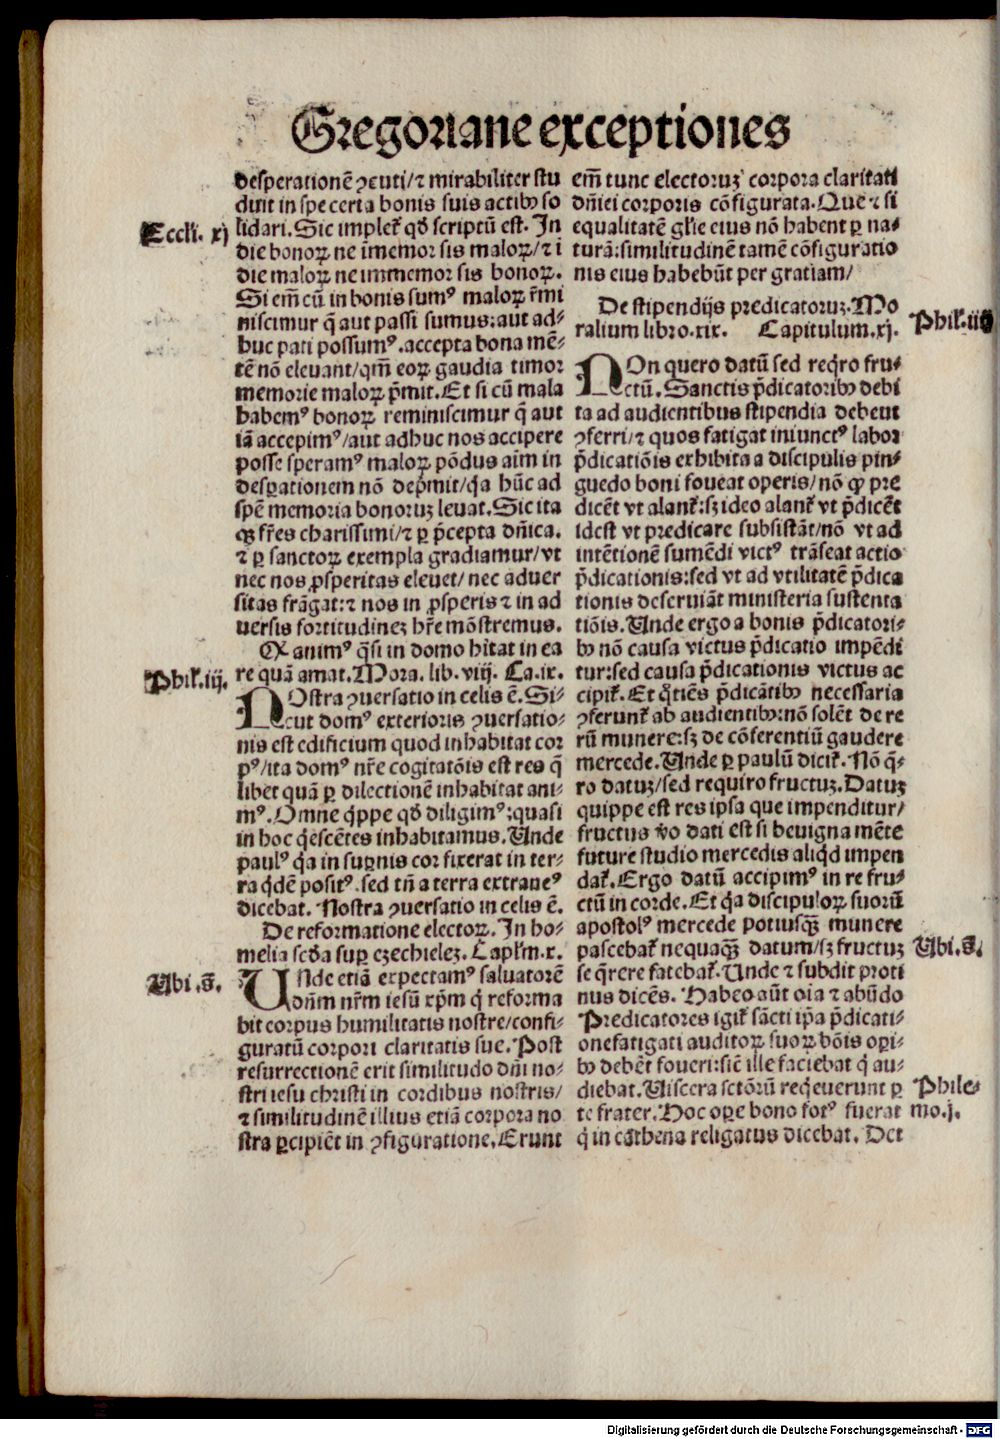 Gregoriane exceptiones
desperationē ꝯcuti/⁊ mirabiliter stu
duit in spe certa bonis suis actibꝰ so
Eccli. xj
lidari. Sic implet᷑ qd̄ scriptū est. In
die bonoꝝ ne īmemor sis maloꝝ/⁊ ī
die maloꝝ ne immemor sis bonoꝝ.
Si em̄ cū in bonis sumꝰ maloꝝ r̄mi
niscimur q̄ aut passi sumus:aut ad⸗
huc pati possumꝰ.accepta bona mē⸗
tē nō eleuant/qm̄ eoꝝ gaudia timor
memorie maloꝝ p̄mit. Et si cū mala
habemꝰ bonoꝝ reminiscimur q̄ aut
iā accepimꝰ/aut adhuc nos accipere
posse speramꝰ maloꝝ pōdus aīm in
desꝑationem nō dep̄mit/q̄a hūc ad
spē memoria bonoruꝫ leuat. Sic ita
qꝫ fr̄es charissimi/⁊ ꝑ p̄cepta dn̄ica.
⁊ ꝑ sanctoꝝ exempla gradiamur/vt
nec nos ꝓsperitas eleuet/ nec aduer
sitas frāgat:⁊ nos in ꝓsperis ⁊ in ad
uersis fortitudineꝫ hr̄e mōstremus.
Qꝫ animꝰ q̄si in domo hītat in ea
re quā amat. Mora. lib. viij. Ca.ix.
Phil᷑.iij.
NOstra ꝯuersatio in celis ē. Si⸗
cut domꝰ exterioris ꝯuersatio⸗
nis est edificium quod inhabitat cor
pꝰ/ita domꝰ nr̄e cogitatōis est res q̄
libet quā ꝑ dilectionē inhabitat ani⸗
mꝰ. Omne q̄ppe qd̄ diligimꝰ:quasi
in hoc q̄escētes inhabitamus. Unde
paulꝰ q̄a in suꝑnis cor fixerat in ter⸗
ra q̄dē positꝰ.sed tn̄ a terra extraneꝰ
dicebat. Nostra ꝯuersatio in celis ē.
De reformatione electoꝝ. In ho⸗
melia sc̄da suꝑ ezechieleꝫ. Capl̄m.x.
Ubi .s̄.
UNde etiā expectamꝰ saluatorē
dn̄m nr̄m iesū xp̄m q̄ reforma
bit corpus humilitatis nostre/confi⸗
guratū corpori claritatis sue. Post
resurrectionē erit similitudo dn̄i no⸗
stri iesu christi in cordibus nostris/
⁊ similitudinē illius etiā corpora no
stra ꝑcipiēt in ꝯfiguratione. Erunt
em̄ tunc electoruꝫ corpora claritati
dn̄ici corporis cōfigurata. Que ⁊ si
equalitatē gl̄ie eius nō habent ꝑ na⸗
turā:similitudinē tamē cōfiguratio
nis eius habebūt per gratiam/
De stipendijs predicatoruꝫ. Mo
ralium libro.xix. Capitulum.xj.
Phil᷑.iiij
NOn quero datū sed reqꝛo fru⸗
ctū. Sanctis p̄dicatoribꝰ debi
ta ad audientibus stipendia debent
ꝯferri/⁊ quos fatigat iniunctꝰ labor
p̄dicatiōis exhibita a discipulis pin⸗
guedo boni foueat operis/nō ꝙ pre
dicēt vt alant᷑:sꝫ ideo alant᷑ vt p̄dicēt
idest vt predicare subsistāt/nō vt ad
intētionē sumēdi victꝰ trāseat actio
p̄dicationis:sed vt ad vtilitatē p̄dica
tionis deseruiāt ministeria sustenta
tiōis. Unde ergo a bonis p̄dicatori⸗
bꝰ nō causa victus p̄dicatio impēdi
tur:sed causa p̄dicationis victus ac
cipit᷑. Et q̄tiēs p̄dicātibꝰ necessaria
ꝯferunt᷑ ab audientibꝰ:nō solēt de re
rū munere:sꝫ de cōferentiū gaudere
mercede. Unde ꝑ paulū dicit᷑. Nō q̄⸗
ro datuꝫ/sed requiro fructuꝫ. Datuꝫ
quippe est res ipsa que impenditur/
fructus v̄o dati est si benigna mēte
future studio mercedis aliq̄d impen
dat᷑. Ergo datū accipimꝰ in re fru⸗
ctū in corde. Et q̄a discipuloꝝ suorū
apostolꝰ mercede potiusqꝫ̄ munere
pascebat᷑ nequaqꝫ̄ datum/sꝫ fructuꝫ
Ubi.s̄.
se q̄rere fatebat᷑. Unde ⁊ subdit proti
nus dicēs. Habeo aūt oīa ⁊ abūdo
Predicatores igit᷑ sācti ip̄a p̄dicati⸗
onefatigati auditoꝝ suoꝝ bōis oꝑi⸗
bꝰ debēt foueri:sic̄ ille faciebat q̄ au⸗
diebat. Uiscera sctōrū reqeuerunt ꝑ
Phile⸗
te frater. Hoc oꝑe bono fotꝰ fuerat
mo.j.
q̄ in cathena religatus dicebat. Det
Digitalisierung gefördert durch die Deutsche Forschungsgemeinschaft - DFG